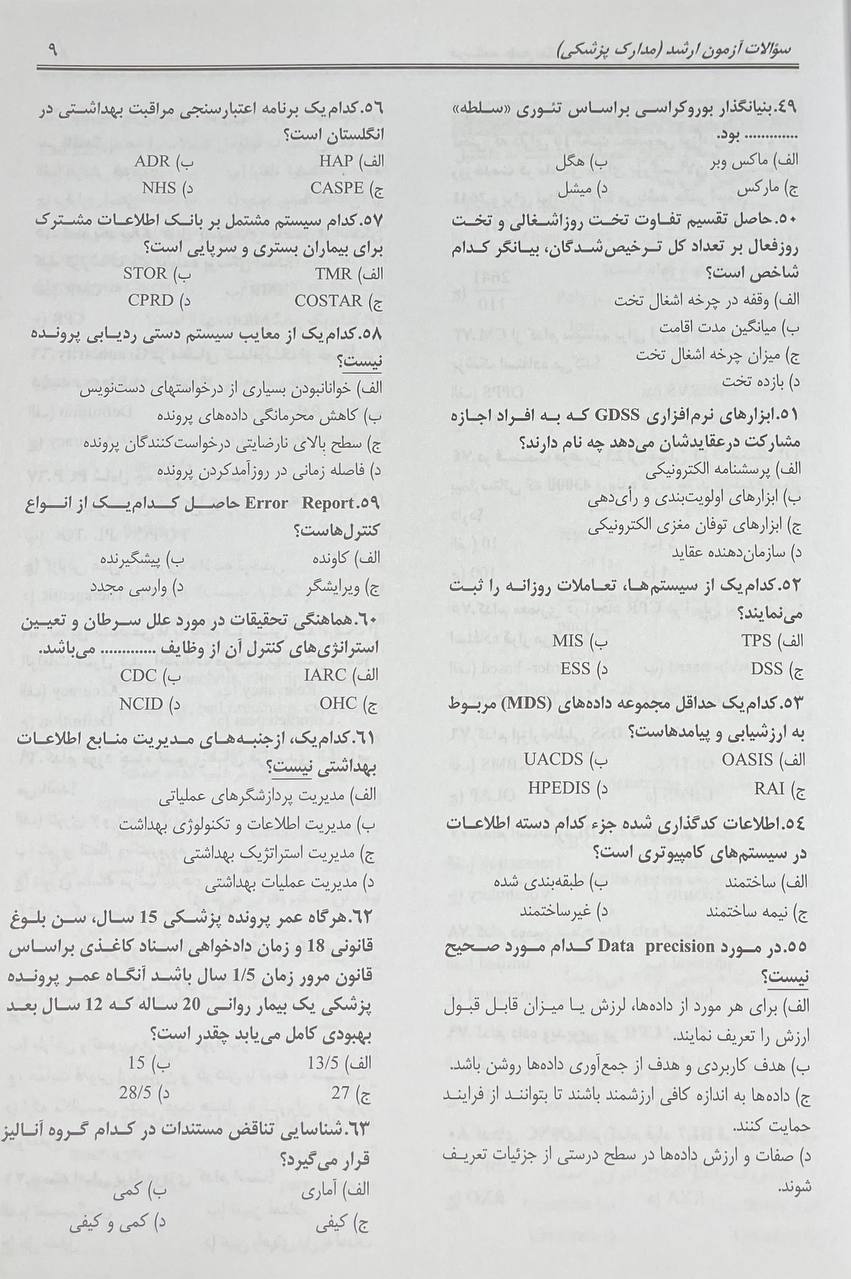 سؤالات آزمون ارشد (مدارک پزشکی)
۹
۴۹.بنیانگذار بوروکراسی براساس تئوری «سلطه»
............ بود.
الف) ماکس وبر ب) هگل
ج) مارکس د) میشل
۵۰.حاصل تقسیم تفاوت تخت روزاشغالی و تخت
روزفعال بر تعداد کل ترخیص‌شدگان، بیانگر کدام
شاخص است؟
الف) وقفه در چرخه اشغال تخت
ب) میانگین مدت اقامت
ج) میزان چرخه اشغال تخت
د) بازده تخت
۵۱.ابزارهای نرم‌افزاری GDSS که به افراد اجازه
مشارکت درعقایدشان می‌دهد چه نام دارند؟
الف) پرسشنامه الکترونیکی
ب) ابزارهای اولویت‌بندی و رأی‌دهی
ج) ابزارهای توفان مغزی الکترونیکی
د) سازمان‌دهنده عقاید
۵۲.کدام‌یک از سیستم‌ها، تعاملات روزانه را ثبت
می‌نمایند؟
الف) TPS ب) MIS
ج) DSS د) ESS
۵۳.کدام‌یک حداقل مجموعه داده‌های (MDS) مربوط
به ارزشیابی و پیامدهاست؟
الف) OASIS ب) UACDS
ج) RAI د) HPEDIS
۵۴.اطلاعات کدگذاری شده جزء کدام دسته اطلاعات
در سیستم‌های کامپیوتری است؟
الف) ساختمند ب) طبقه‌بندی شده
ج) نیمه ساختمند د) غیرساختمند
۵۵.در مورد Data precision کدام مورد صحیح
نیست؟
الف) برای هر مورد از داده‌ها، لرزش یا میزان قابل قبول
ارزش را تعریف نمایند.
ب) هدف کاربردی و هدف از جمع‌آوری داده‌ها روشن باشد.
ج) داده‌ها به اندازه کافی ارزشمند باشند تا بتوانند از فرایند
حمایت کنند.
د) صفات و ارزش داده‌ها در سطح درستی از جزئیات تعریف
شوند.
۵۶.کدام‌یک برنامه اعتبارسنجی مراقبت بهداشتی در
انگلستان است؟
الف) HAP ب) ADR
ج) CASPE د) NHS
۵۷.کدام سیستم مشتمل بر بانک اطلاعات مشترک
برای بیماران بستری و سرپایی است؟
الف) TMR ب) STOR
ج) COSTAR د) CPRD
۵۸.کدام‌یک از معایب سیستم دستی ردیابی پرونده
نیست؟
الف) خوانانبودن بسیاری از درخواستهای دست‌نویس
ب) کاهش محرمانگی داده‌های پرونده
ج) سطح بالای نارضایتی درخواست‌کنندگان پرونده
د) فاصله زمانی در روزآمدکردن پرونده
۵۹.Error Report حاصل کدام‌یک از انواع
کنترل‌هاست؟
الف) کاونده ب) پیشگیرنده
ج) ویرایشگر د) وارسی مجدد
۶۰.هماهنگی تحقیقات در مورد علل سرطان و تعیین
استراتژی‌های کنترل آن از وظایف ............ می‌باشد.
الف) IARC ب) CDC
ج) OHC د) NCID
۶۱.کدام‌یک، ازجنبه‌های مدیریت منابع اطلاعات
بهداشتی نیست؟
الف) مدیریت پردازشگرهای عملیاتی
ب) مدیریت اطلاعات و تکنولوژی بهداشت
ج) مدیریت استراتژیک بهداشتی
د) مدیریت عملیات بهداشتی
۶۲.هرگاه عمر پرونده پزشکی 15 سال، سن بلوغ
قانونی 18 و زمان دادخواهی اسناد کاغذی براساس
قانون مرور زمان 1/5 سال باشد آنگاه عمر پرونده
پزشکی یک بیمار روانی 20 ساله که 12 سال بعد
بهبودی کامل می‌یابد چقدر است؟
الف) 13/5 ب) 15
ج) 27 د) 28/5
۶۳.شناسایی تناقض مستندات در کدام گروه آنالیز
قرار می‌گیرد؟
الف) آماری ب) کمی
ج) کیفی د) کمی و کیفی